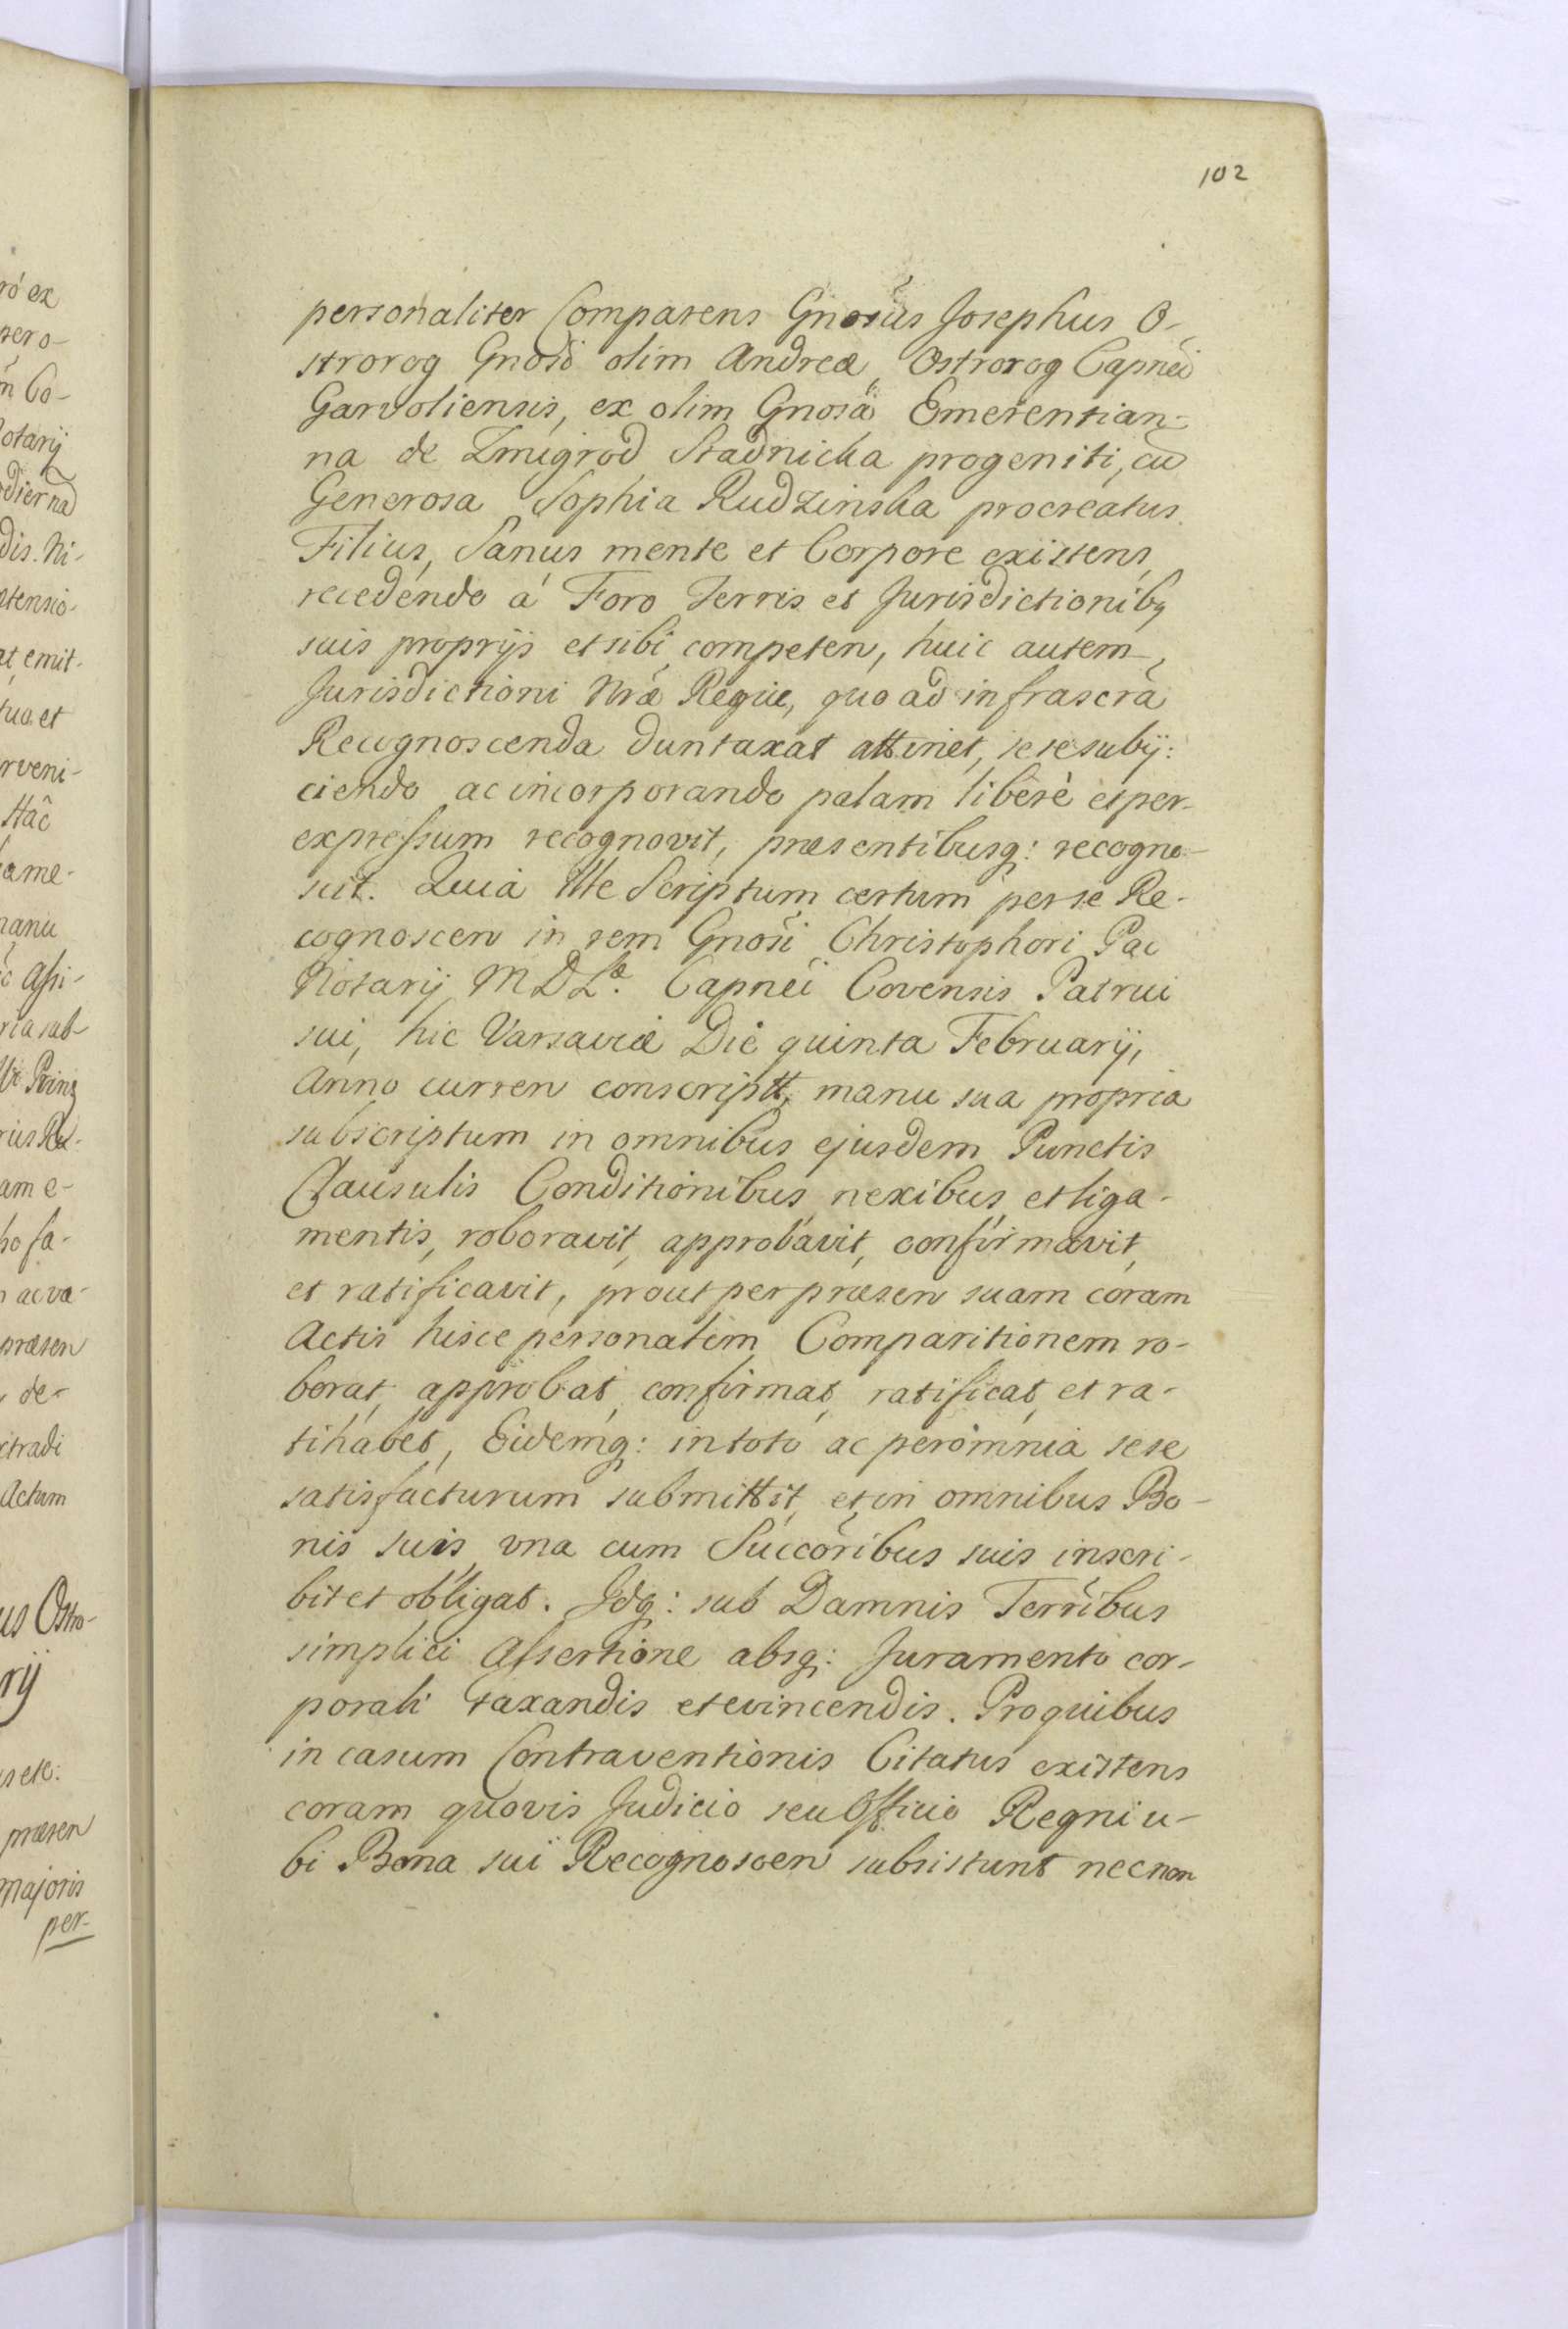 102
personaliter Comparens Gnosus Josephus O-
strorog Gnosi olim Andreæ Ostrorog Capnei
Garvoliensis, ex olim Gnosa Emerentian-
na de Zmigrod Stadnicka progeniti, cu
Generosa Sophia Rudzinska procreatus
Filius, Sanus mente et Corpore existens,
recedendo á Foro Terris et Jurisdictionibq
suis proprijs et sibi competen, huic autem
Jurisdictioni Nræ Regiæ, quo ad infrascra
Recognoscenda duntaxat attinet, se se subij:
ciendo ac incorporando palam liberè et per-
expressum recognovit, præsentibusq: recogno-
scit. Quia Ille Scriptum certum per se Re-
cognoscen in rem Gnosi Christophori Pac
Notarij M D L. Capnei Covensis Patrui
sui, hic Varsaviæ Die quinta Februarij,
Anno curren conscriptt, manu sua propria
subscriptum in omnibus ejusdem Punctis
Clausulis Conditionibus nexibus et liga-
mentis, roboravit, approbavit, confirmavit,
et ratificavit, prout per præsen suam coram
Actis hisce personalem Comparitionem ro-
borat, approbat, confirmat, ratificat, et ra-
tihabet, Eidemq: in toto ac per omnia sese
satisfacturum submittit, et in omnibus Bo-
nis suis una cum Succoribus suis inscri-
bit et obligat. Idq: sub Damnis Terribus
simplici Assertione absq: Juramento cor-
porali taxandis et evincendis. Pro quibus
in casum Contraventionis Citatus existens
coram quovis Judicio seu Officio Regni u-
bi Bona sui Recognoscen subsistunt nec non